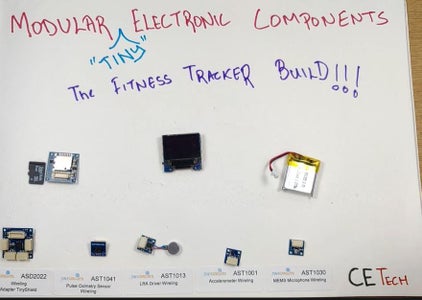 MODULAR ELECTRONIC COMPONENTS
"TINY"
The FITNESS TRACKER BUILD!!!
ASD2022
Wireling
Adapter TinyShield
AST1041
Pulse Oximetry Sensor
Wireling
AST1013
LRA Driver Wireling
AST1001
Accelerometer Wireling
AST1030
MEMS Microphone Wireling
CETECH